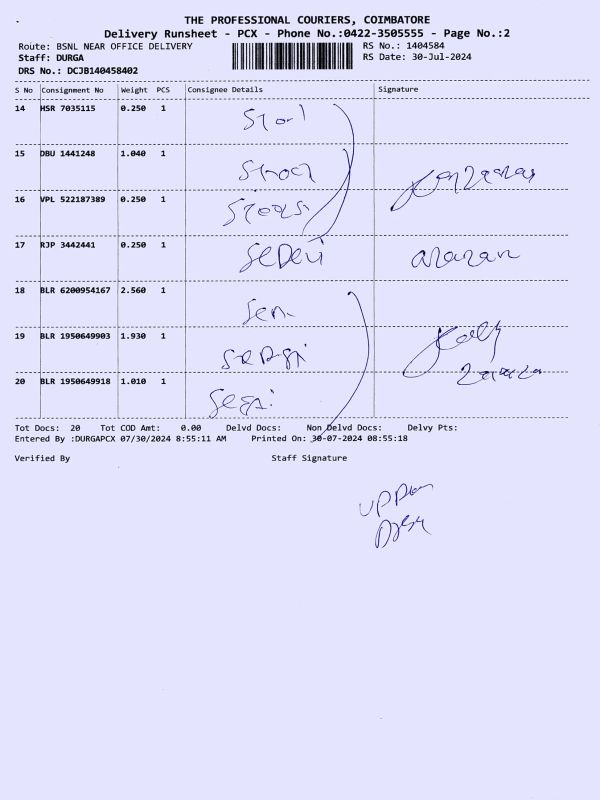 THE PROFESSIONAL COURIERS, COIMBATORE
Delivery Runsheet - PCX - Phone No.:0422-3505555 - Page No.:2
Route: BSNL NEAR OFFICE DELIVERY RS No.: 1404584
Staff: DURGA RS Date: 30-Jul-2024
DRS No.: DCJB140458402
S No Consignment No Weight PCS Consignee Details Signature
14 HSR 7035115 0.250 1
15 DBU 1441248 1.040 1
16 VPL 522187389 0.250 1
17 RJP 3442441 0.250 1
18 BLR 6200954167 2.560 1
19 BLR 1950649903 1.930 1
20 BLR 1950649918 1.010 1
Tot Docs: 20 Tot COD Amt: 0.00 Delvd Docs: Non Delvd Docs: Delvy Pts:
Entered By :DURGAPCX 07/30/2024 8:55:11 AM Printed On: 30-07-2024 08:55:18
Verified By Staff Signature